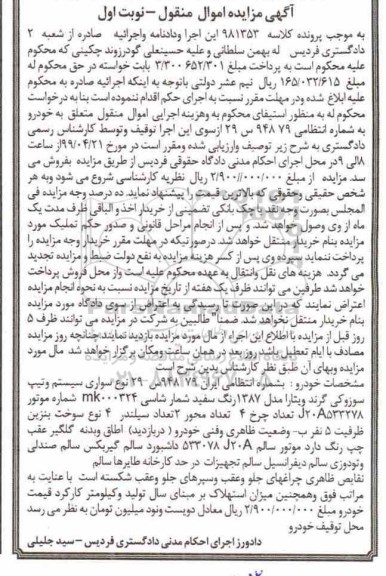 آگهی مزایده اموال منقول – نوبت اول
به موجب پرونده کلاسه ۹۸۱۳۵۳ این اجرا ودادنامه واجرائیه صادره از شعبه ۲
دادگستری فردیس له بهمن سلطانی و علیه حسینعلی گودرزوند چکینی که محکوم
علیه محکوم است به پرداخت مبلغ ۳/۳۰۰۶۵۲/۳۰۱ بابت خواسته در حق محکوم له
مبلغ ۱۶۵/۰۳۲/۶۱۵ ریال نیم عشر دولتی باتوجه به اینکه اجرائیه صادره به محکوم
علیه ابلاغ شده ودر مهلت مقرر نسبت به اجرای حکم اقدام ننموده است بنا به درخواست
محکوم له به منظور استیفای محکوم به وهزینه اجرایی اموال منقول متعلق به خودرو
به شماره انتظامی ۷۹ ۹۴۸ س ۲۹ ازسوی این اجرا توقیف وتوسط کارشناس رسمی
دادگستری به شرح زیر توصیف وارزیابی شده ومقرر است در مورخ ۹۹/۰۴/۲۱از ساعت
۸الی ۹در محل اجرای احکام مدنی دادگاه حقوقی فردیس از طریق مزایده بفروش می
رسد. مزایده از مبلغ ۲/۹۰۰//۰۰۰/۰۰۰ ریال نظریه کارشناسی شروع می شود وبه هر
شخص حقیقی وحقوقی که بالاترین قیمت را پیشنهاد نماید. ده درصد وجه مزایده فی
المجلس بصورت وجه نقد یا چک بانکی تضمینی از خریدار اخذ و الباقی ظرف مدت یک
ماه از وی وصول خواهد شد. و پس از انجام مراحل قانونی و صدور حکم تملیک مورد
مزایده بنام خریدار منتقل خواهد شد. درصورتیکه در مهلت مقرر خریدار وجه مزایده را
پرداخت ننماید سپرده وی پس از کسر هزینه مزایده به نفع دولت ضبط و مزایده تجدید
می گردد. هزینه های نقل وانتقال به عهده محکوم علیه است واز محل فروش پرداخت
خواهد شد طرفین می توانند ظرف یک هفته از تاریخ مزایده نسبت به نحوه انجام مزایده
اعتراض نمایند که در این صورت تا رسیدگی به اعتراض از سوی دادگاه مورد مزایده
بنام خریدار منتقل نخواهد شد. ضمنا طالبین به شرکت در مزایده می توانند ظرف ۵
روز قبل از مزایده با اطلاع این اجراء از مال مورد مزایده بازدید نمایند. چنانچه روز مزایده
مصادف با ایام تعطیل باشد روز بعد در همان ساعت ومکان برگزار خواهد شد. مال مورد
مزایده وبهای آن طبق نظر کارشناس بدین شرح است
مشخصات خودرو : بشماره انتظامی ایران ۷۹ ۹۴۸س ۲۹ نوع سواری سیستم وتیپ
سوزوکی گرند ویتارا مدل ۱۳۸۷رنگ سفید شمار شاسی mk۰۰۰۳۲۴ شماره موتور
J۲۰A۵۳۳۲۷۸ تعداد چرخ ۴ تعداد محور ۲تعداد سیلندر ۴ نوع سوخت بنزین
ظرفیت ۵ نفر ب- وضعیت ظاهری وفنی خودرو ( دربازدید) اطاق وبدنه گلگیر عقب
چپ رنگ دارد موتور سالم J۲۰A ۵۳۳۰۷۸ داشبورد سالم گیربکس سالم صندلی
وتودوزی سالم دیفرانسیل سالم تجهیزات در حد کارخانه طایرها سالم
نقایص ظاهری چراغهای جلو وعقب وسپرهای جلو وعقب شکسته است با عنایت به
مراتب فوق وهمچنین میزان استهلاک بر مبنای سال تولید وکیلومتر کارکرد قیمت
خودرو مبلغ ۲/۹۰۰/۰۰۰/۰۰۰ ریال معادل دویست ونود میلیون تومان به نظر می رسد
محل توقیف خودرو
دادورز اجرای احکام مدنی دادگستری فردیس – سید جلیلی